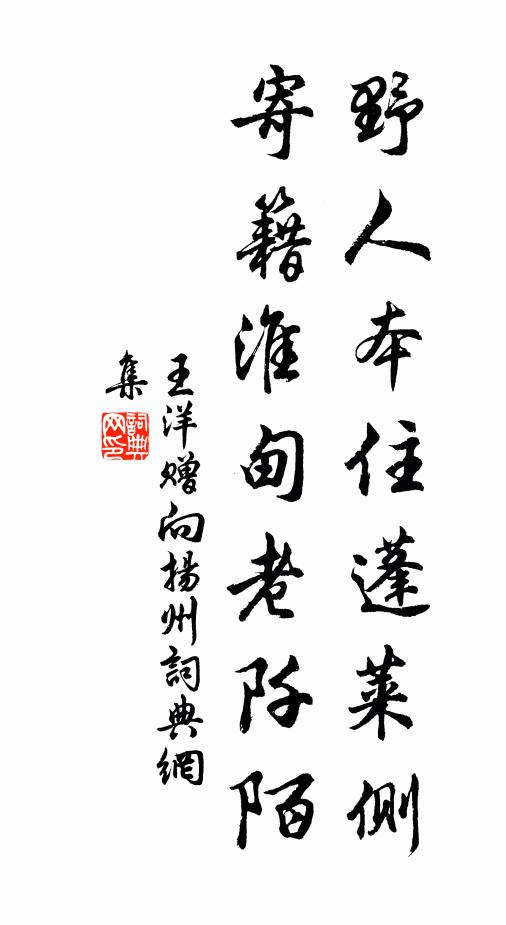 野人本住蓬萊側
寄籍淮甸老阡陌
王洋贈向揚州詞典網
集
詞典
网印